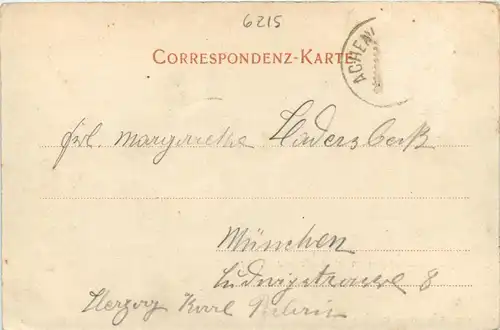 6215
CORRESPONDENZ-KARTE
ACHEN
Frl. Margarethe Hadersbeck
München
Ludwigstrasse 8
Herzog Karl